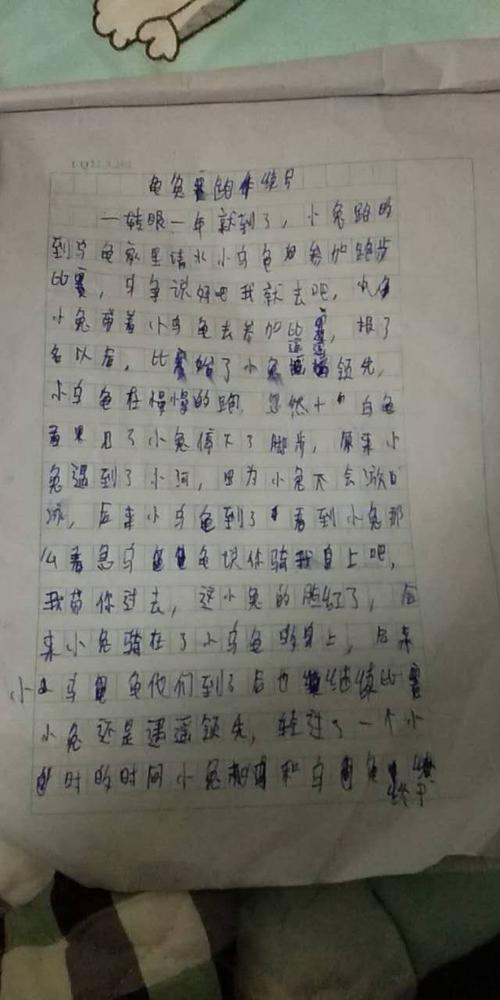 龟兔赛跑作续写
一转眼一年就到了，小兔跑
到乌龟家里请小乌龟参加跑步
比赛，乌龟说好吧我就去吧，
小兔带着小乌龟去参加比赛，报了
名以后，比赛始了小兔遥遥领先，
小乌龟在慢慢的跑，忽然
看见了小兔停下了脚步，原来小
兔遇到了小河，因为小兔不会游
泳，后来小乌龟到了看到小兔那
么着急乌龟说你骑我身上吧，
我带你过去，这小兔的脸红了，后
来小兔骑在了小乌龟的身上，后来
小乌龟他们到了后也继续比赛
小兔还是遥遥领先，经过了一个小
时的时间小兔和乌龟